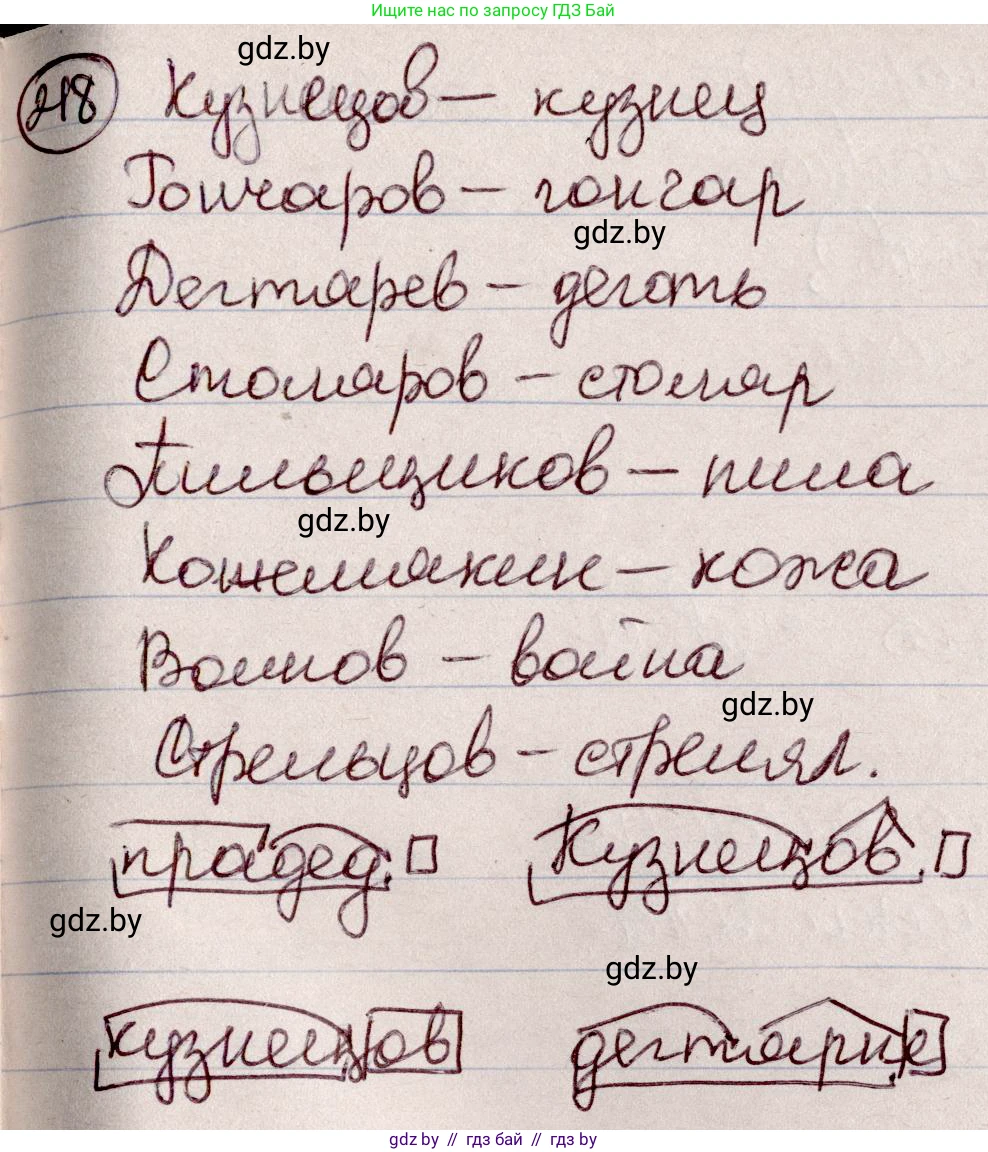 Ищите нас по запросу ГДЗ Бай
gdz.by
218 Кузнецов – кузнец
Гончаров – гончар
gdz.by
Дегтярев – деготь
Столяров – столяр
Пильщиков – пила
gdz.by
Кожемякин – кожа
Воинов – война
gdz.by
Стрельцов – стрелял.
прадед Кузнецов
gdz.by
gdz.by
кузнецов дегтярне
gdz.by // гдз бай // гдз by